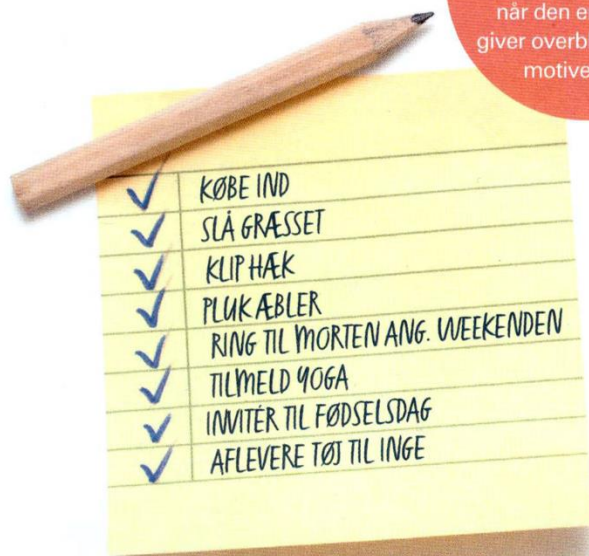 når den
giver
KØBE IND
SLÅ GRÆSSET
KLIP HÆK
PLUK ÆBLER
RING TIL MORTEN ANG. WEEKENDEN
TILMELD YOGA
INVITÉR TIL FØDSELSDAG
AFLEVERE TØJ TIL INGE